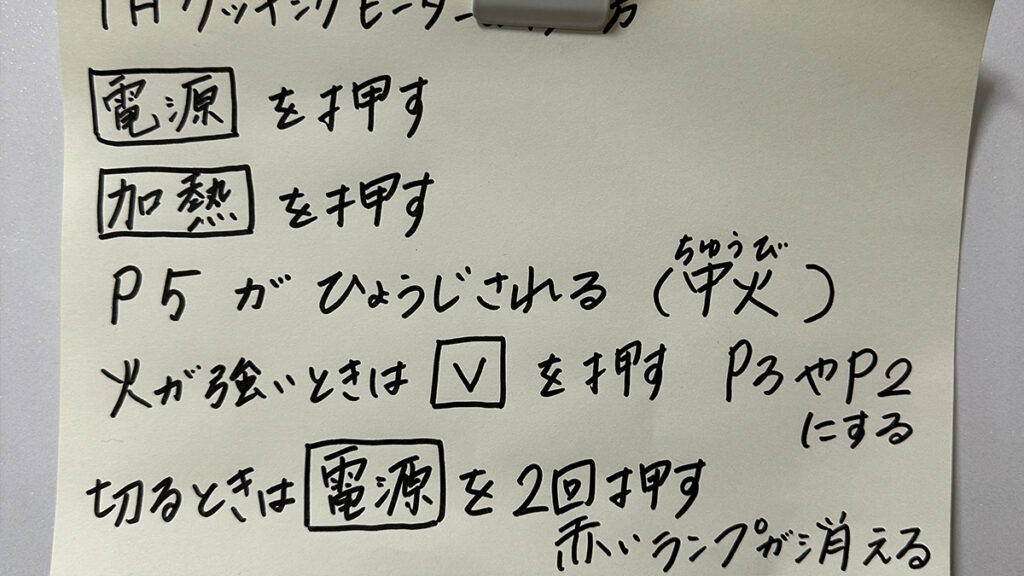 IHクッキングヒーター 方
電源 を押す
加熱 を押す
P5 が ひょうじされる (中火)
ちゅうび
火が強いときは ∨ を押す P3やP2
にする
切るときは 電源 を2回押す
赤いランプが消える